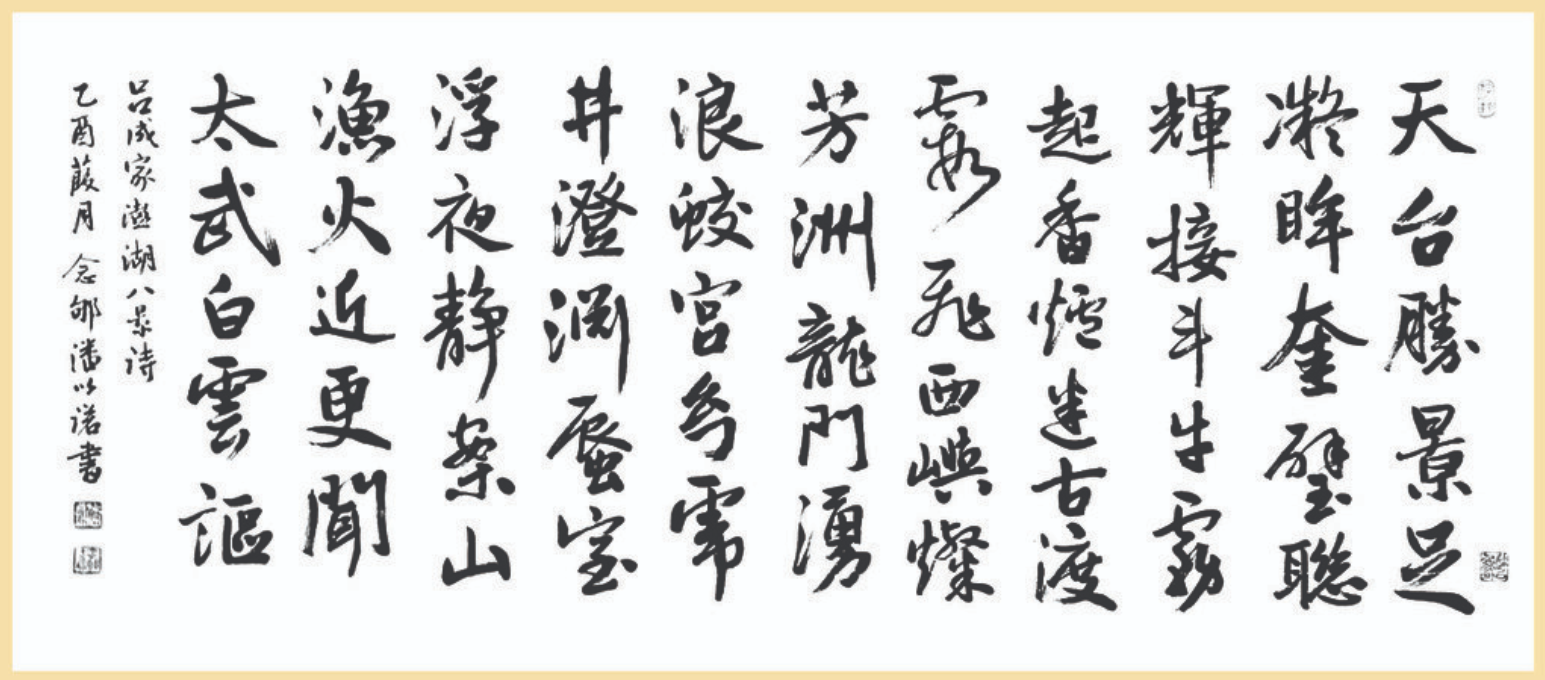 天台勝景足
凝眸奎璧聯
輝接斗牛霧
起香爐迷古渡
霞飛西嶼燦
芳洲龍門湧
浪蛟宮兮霈
井澄淵蜃室
浮夜靜案山
漁火近更聞
太武白雲謳
呂成家澎湖八景詩
乙酉葭月念邨潘以諾書